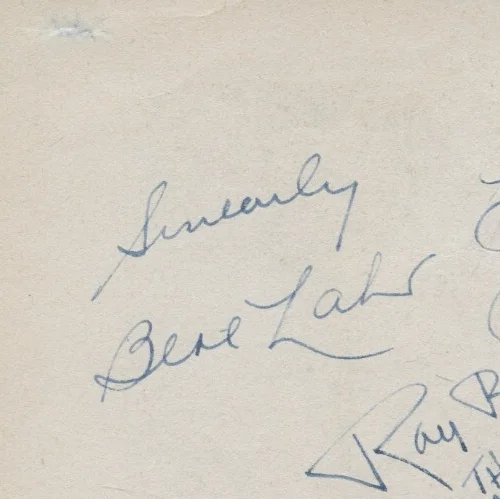 Sincerely
Bert Lahr
Ray